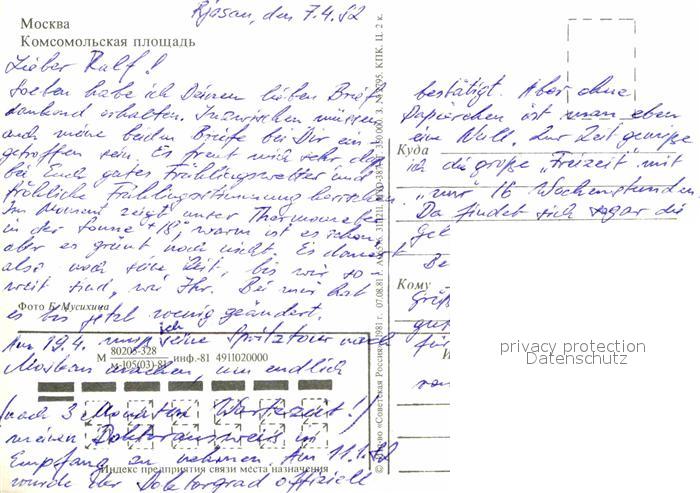 Москва
Комсомольская площадь
Rjasan, den 7.4.82
Lieber Ralf!
Soeben habe ich Deinen lieben Brief
dankend erhalten. Inzwischen müssen
auch meine beiden Briefe bei Dir ein-
getroffen sein. Es freut mich sehr, daß
bei Euch gutes Frühlingswetter und
fröhliche Frühlingsstimmung herrschen.
Im Moment zeigt unser Thermometer
in der Sonne +18°, warm ist es schon,
aber es grünt noch nicht. Es dauert
also noch seine Zeit, bis wir so-
weit sind, wie Ihr. Bei mir hat
es bis jetzt wenig geändert.
Фото Б. Мусихина
Am 19.4. muß ich eine Spritztour nach
Moskau machen, um endlich
М 80205-328 м-105(03)-81 инф.-81 4911020000
(nach 3 Monaten Wartezeit!)
meinen Doktorausweis in
Empfang zu nehmen. Am 11.1.82
Индекс предприятия связи места назначения
wurde der Doktorgrad offiziell
bestätigt. Aber ohne
Papierchen ist man eben
eine Null. Zur Zeit genieße
Куда
ich die große „Freizeit" mit
„nur 16 Wochenstunden
Da findet sich sogar die
Кому
für
privacy protection
Datenschutz